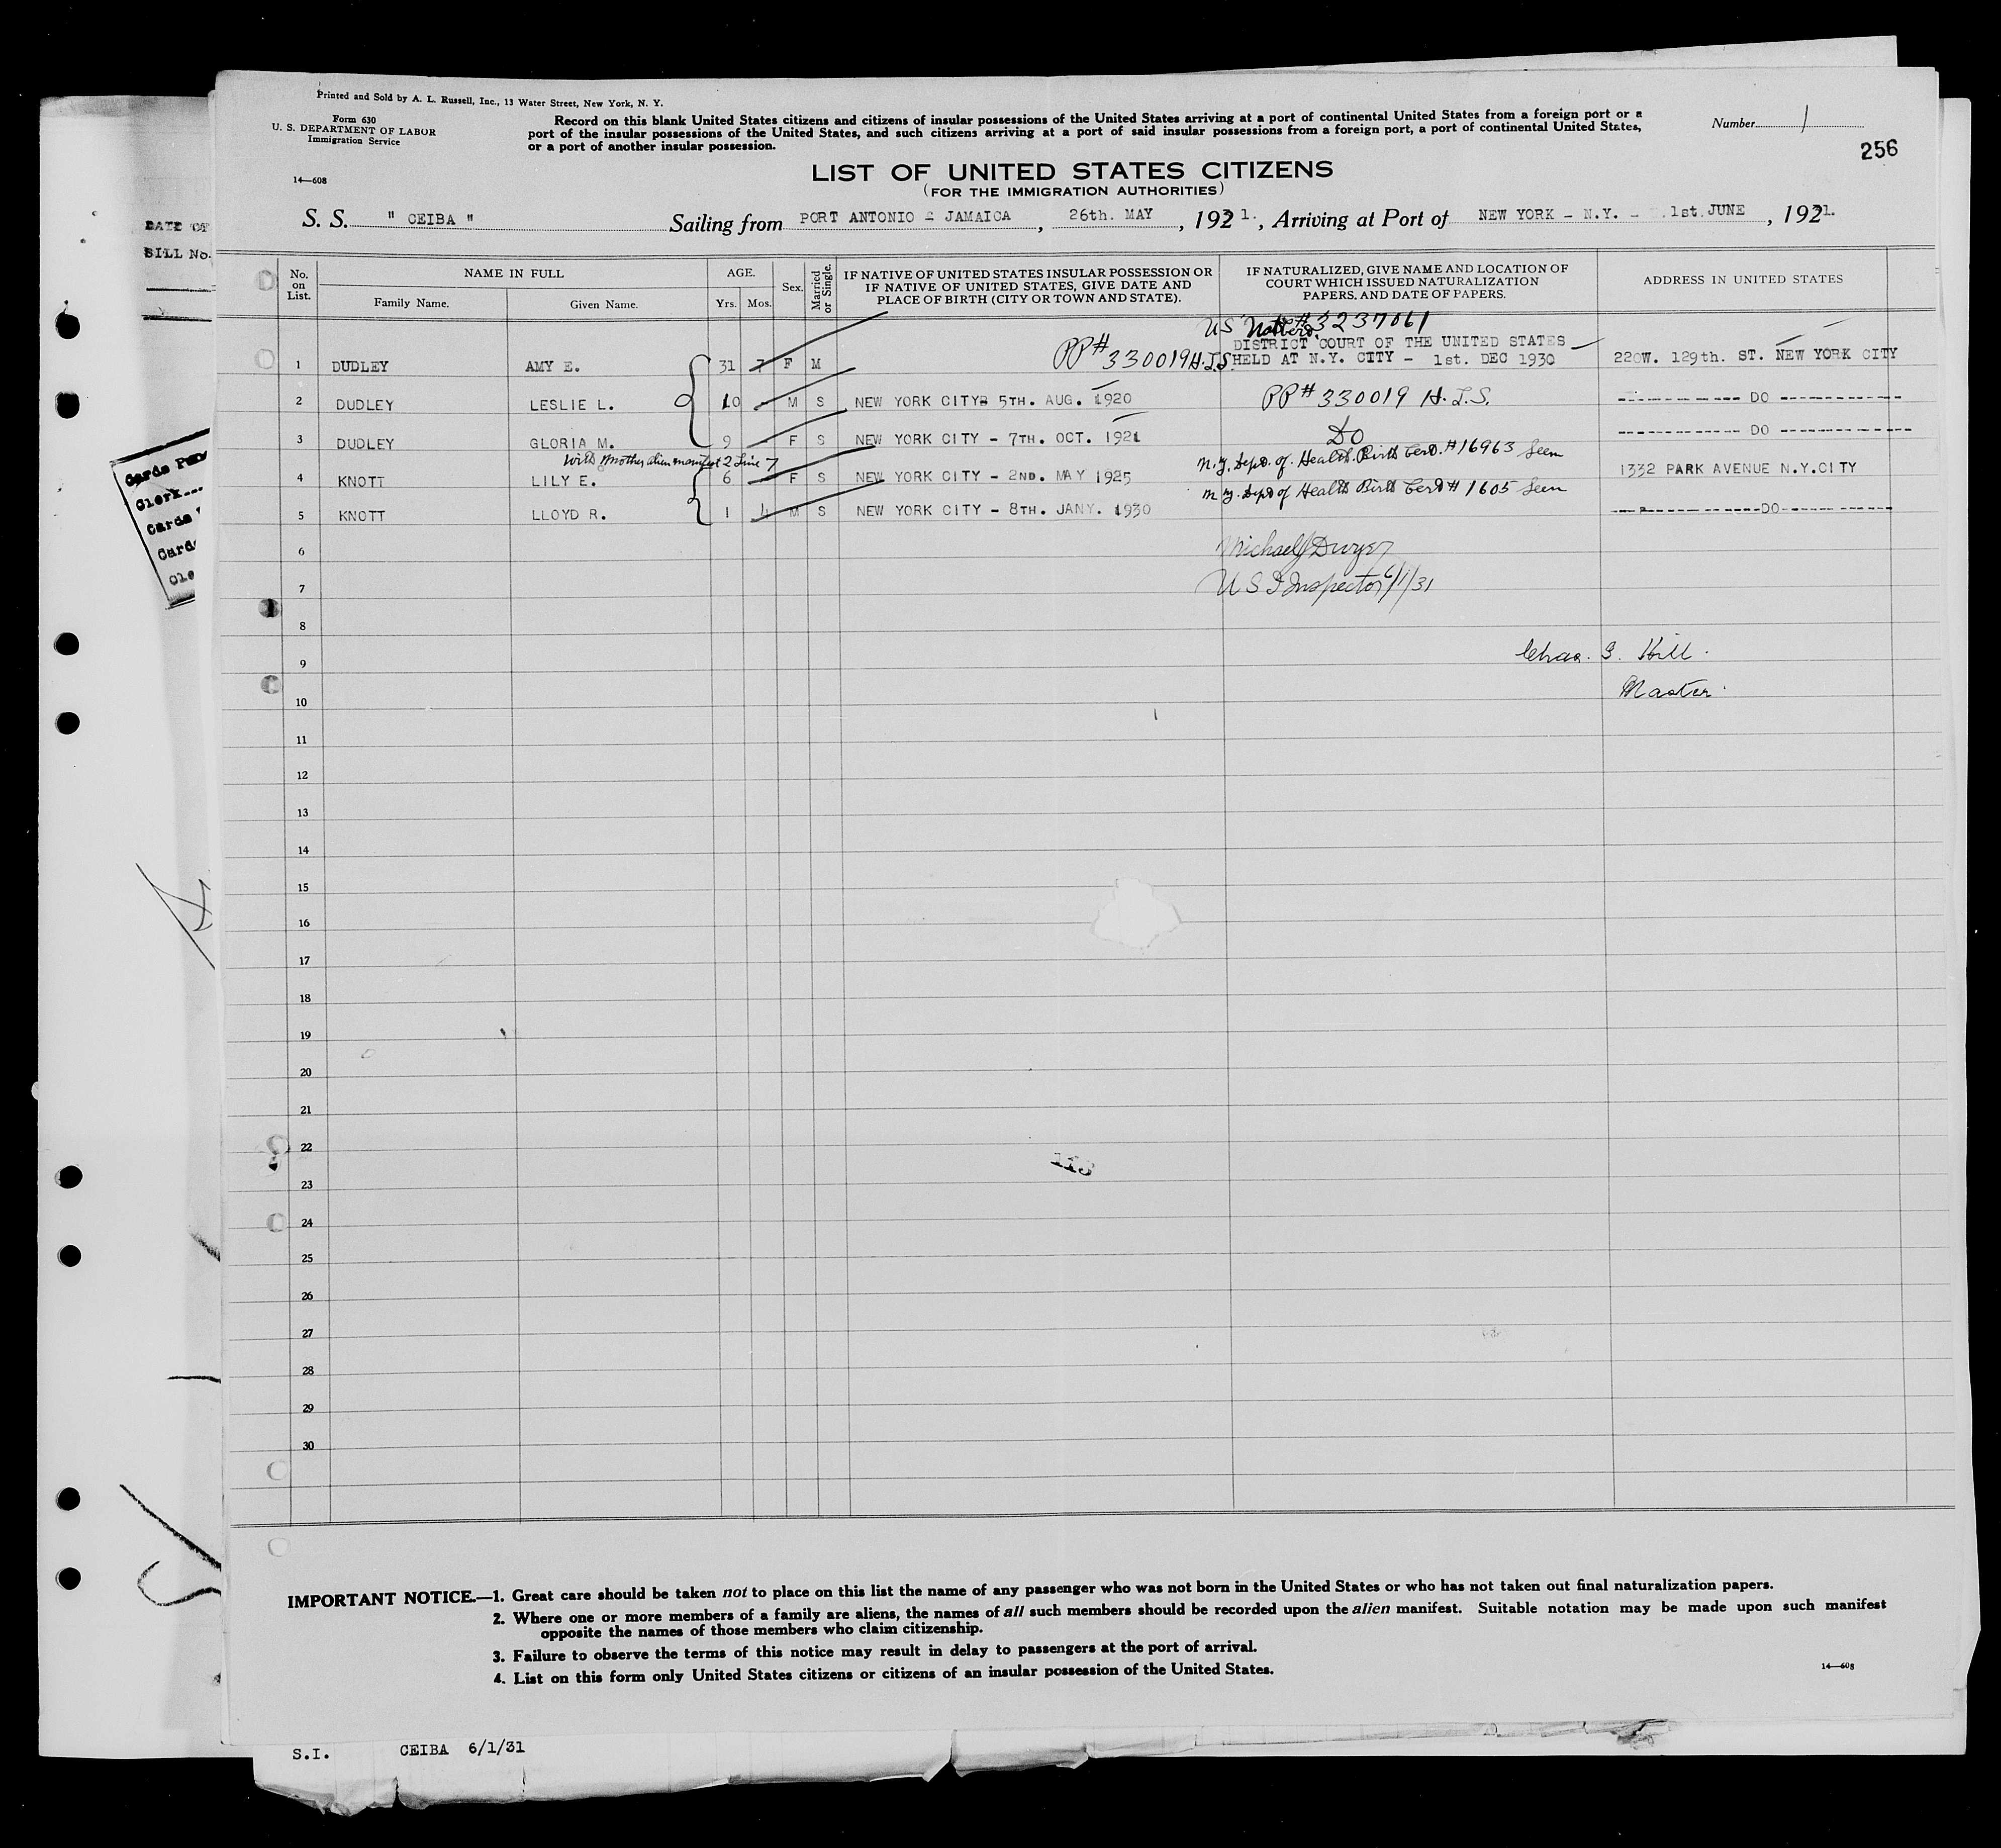 Printed and Sold by A. L. Russell, Inc., 13 Water Street, New York, N. Y.
Form 630
U. S. DEPARTMENT OF LABOR
Immigration Service
14—608
Record on this blank United States citizens and citizens of insular possessions of the United States arriving at a port of continental United States from a foreign port or a
port of the insular possessions of the United States, and such citizens arriving at a port of said insular possessions from a foreign port, a port of continental United States,
or a port of another insular possession.
Number 1
256
LIST OF UNITED STATES CITIZENS
(FOR THE IMMIGRATION AUTHORITIES)
S. S. " CEIBA " Sailing from PORT ANTONIO JAMAICA, 26th. MAY, 1931., Arriving at Port of NEW YORK - N.Y. - 1st. JUNE, 1931.
DATE OF
BILL No.
No. on List.
NAME IN FULL
Family Name.
Given Name.
AGE.
Yrs.
Mos.
Sex.
Married or Single.
IF NATIVE OF UNITED STATES INSULAR POSSESSION OR
IF NATIVE OF UNITED STATES, GIVE DATE AND
PLACE OF BIRTH (CITY OR TOWN AND STATE).
IF NATURALIZED, GIVE NAME AND LOCATION OF
COURT WHICH ISSUED NATURALIZATION
PAPERS, AND DATE OF PAPERS.
ADDRESS IN UNITED STATES
US # 3237061
DISTRICT COURT OF THE UNITED STATES
1 DUDLEY AMY E. 31 7 F M PP# 330019 H.I.S. HELD AT N.Y. CITY - 1st. DEC 1930 220W. 129th. ST. NEW YORK CITY
2 DUDLEY LESLIE L. 10 - M S NEW YORK CITY 5TH. AUG. 1920 PP# 330019 H.I.S. ------------ DO ------------
3 DUDLEY GLORIA M. 9 - F S NEW YORK CITY - 7TH. OCT. 1921 Do ------------ DO ------------
With Mother alien manifest 2 Line 7
N.Y. Dept. of Health Birth Cert. #16963 Seen
4 KNOTT LILY E. 6 - F S NEW YORK CITY - 2ND. MAY 1925 1332 PARK AVENUE N.Y.CITY
N.Y. Dept of Health Birth Cert # 1605 Seen
5 KNOTT LLOYD R. 1 4 M S NEW YORK CITY - 8TH. JANY. 1930 ------------DO------------
6
Michael J Dwyer
7
U S I Inspector 6/1/31
8
9
Chas. G. Hill.
10
Master.
11
12
13
14
15
16
17
18
19
20
21
22
23
24
25
26
27
28
29
30
IMPORTANT NOTICE.—1. Great care should be taken not to place on this list the name of any passenger who was not born in the United States or who has not taken out final naturalization papers.
2. Where one or more members of a family are aliens, the names of all such members should be recorded upon the alien manifest. Suitable notation may be made upon such manifest
opposite the names of those members who claim citizenship.
3. Failure to observe the terms of this notice may result in delay to passengers at the port of arrival.
4. List on this form only United States citizens or citizens of an insular possession of the United States.
14—608
S.I. CEIBA 6/1/31